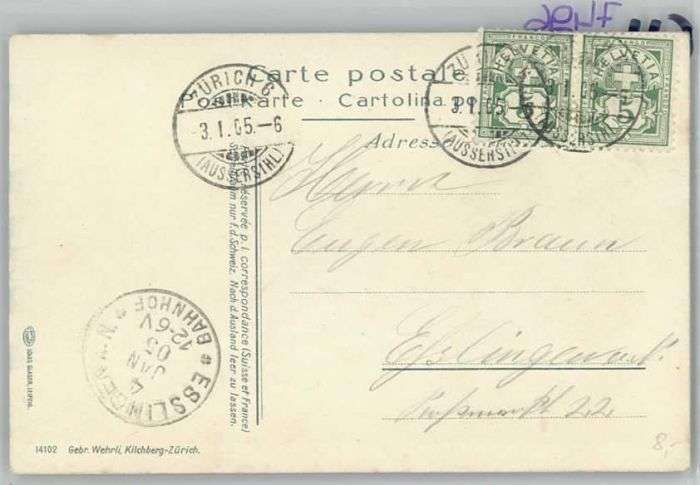 HELVETIA HELVETIA
Carte postale
Postkarte · Cartolina po
ZÜRICH 6
3.1.05.-6
(AUSSERSIHL)
3.1.05
(AUSSERSIHL)
Adresse
Herrn
Eugen Braun
Esslingen
22
réservée p. l correspondance (Suisse et France)
nur f. d. Schweiz. Nach d. Ausland leer zu lassen.
ESSLINGEN a. N.
BAHNHOF
4
JAN
05
12-6V
14102 Gebr. Wehrli, Kilchberg-Zürich.
8,-